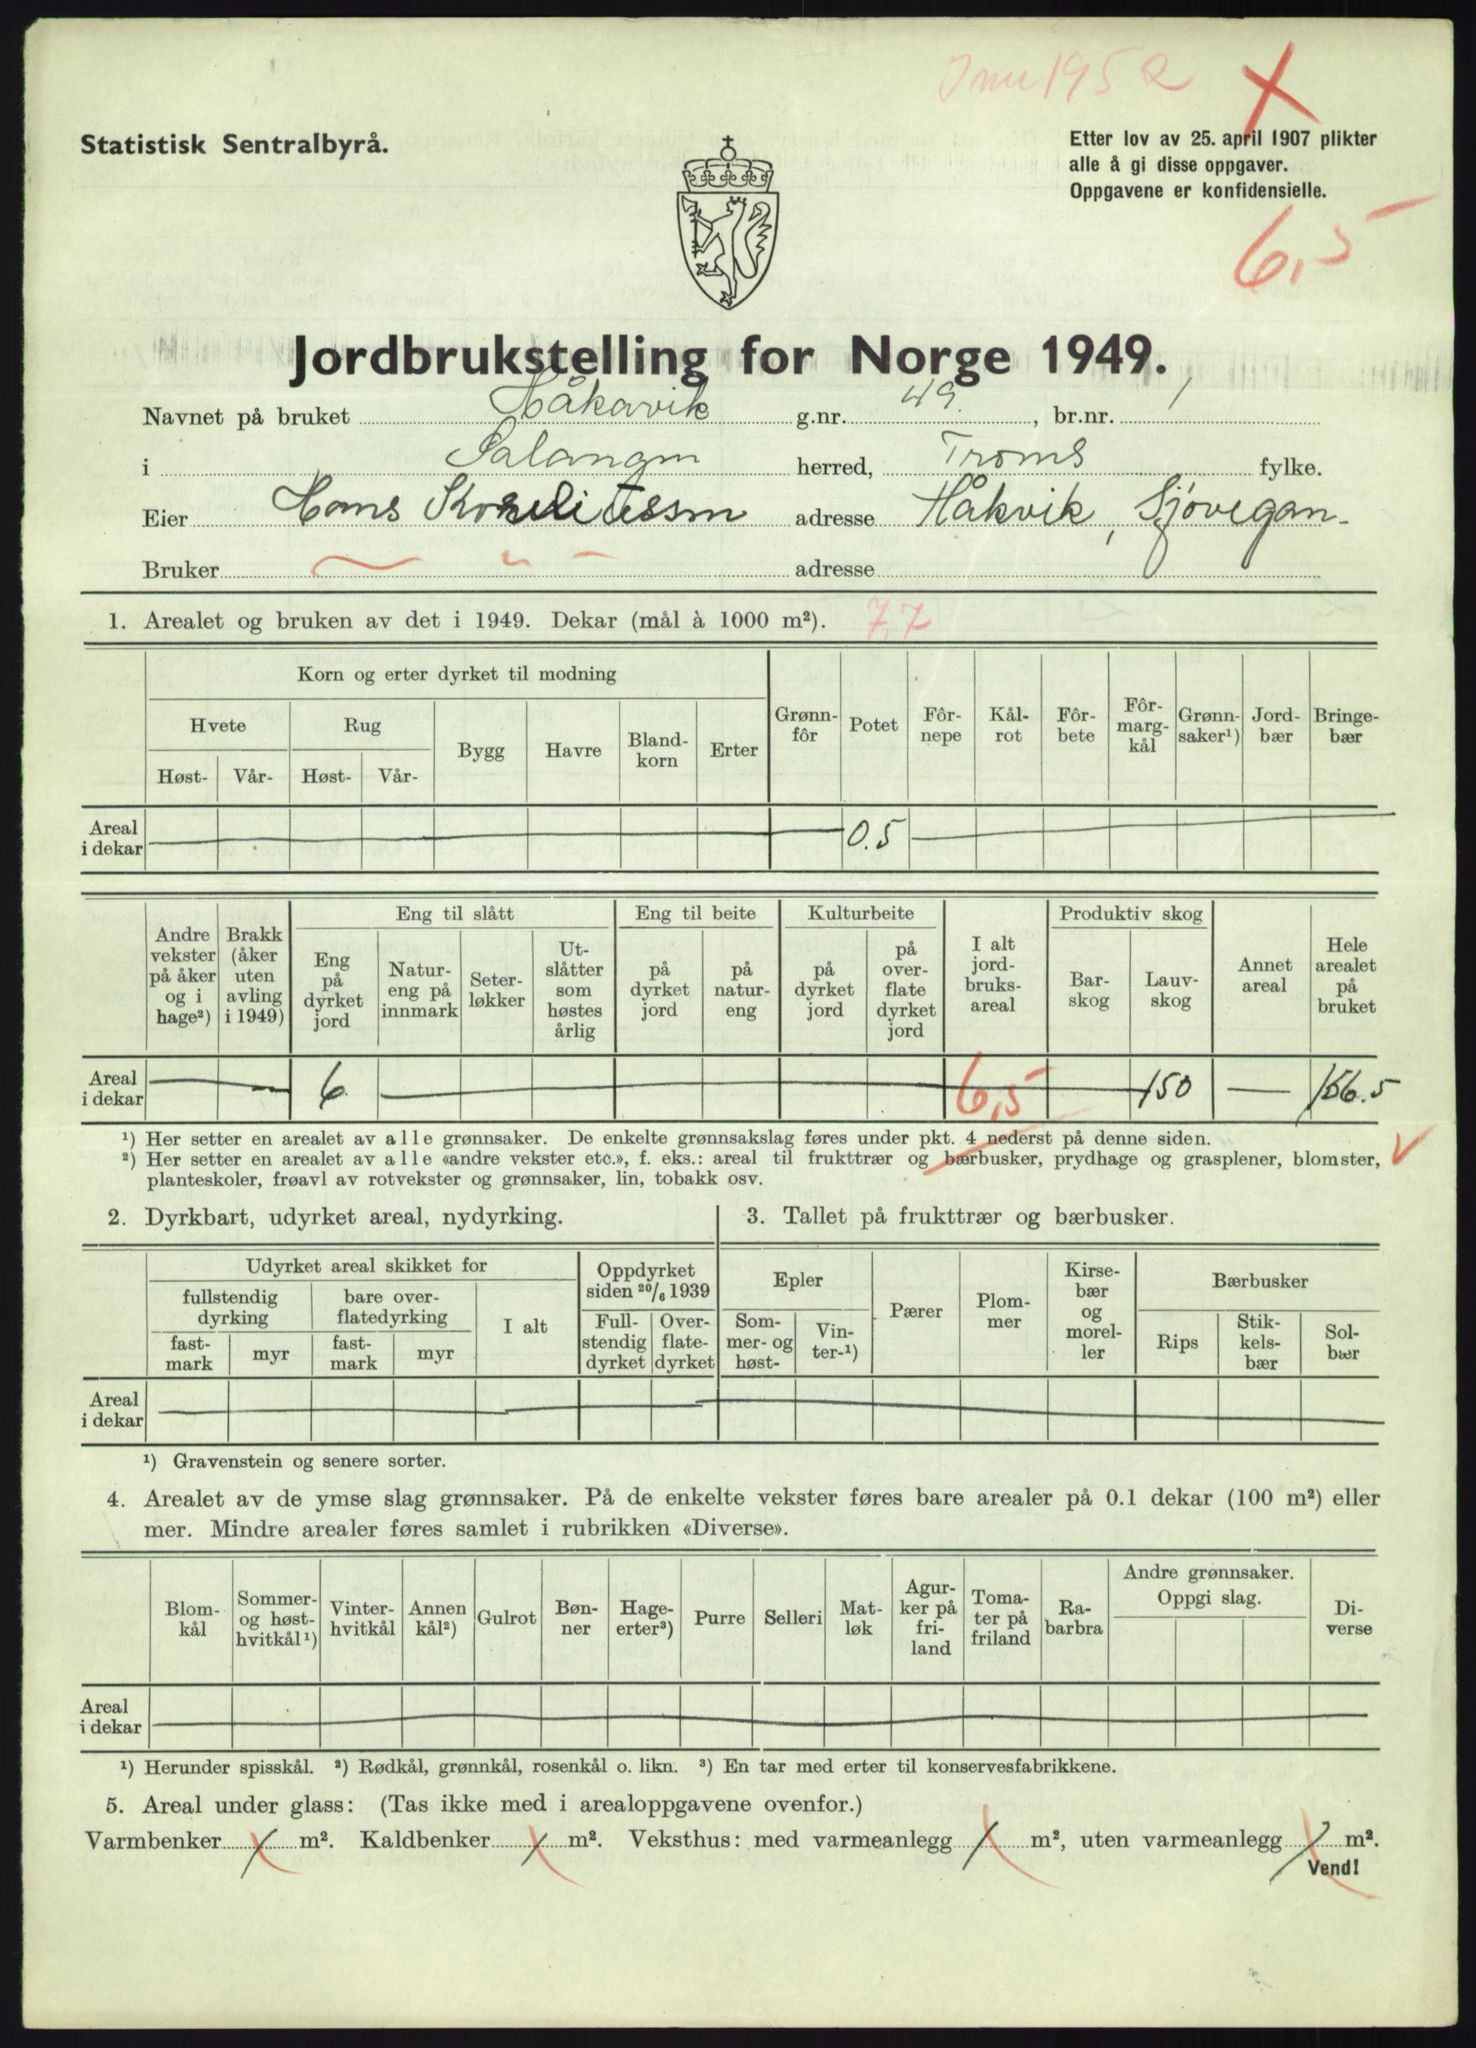 1952
Statistisk Sentralbyrå.
Etter lov av 25. april 1907 plikter
alle å gi disse oppgaver.
Oppgavene er konfidensielle.
6,5
Jordbrukstelling for Norge 1949.
Navnet på bruket Håkavik g.nr. 49. , br.nr. 1
i Salangen herred, Troms fylke.
Eier Hans adresse Håkvik, Sjøvegan
Bruker adresse
1. Arealet og bruken av det i 1949. Dekar (mål à 1000 m²). 7,7
Korn og erter dyrket til modning
Hvete Rug Bygg Havre Bland-korn Erter Grønn-fôr Potet Fôr-nepe Kål-rot Fôr-bete Fôr-marg-kål Grønn-saker¹) Jord-bær Bringe-bær
Høst- Vår- Høst- Vår-
Areal i dekar 0.5
Andre vekster på åker og i hage²) Brakk (åker uten avling i 1949) Eng til slått Eng til beite Kulturbeite I alt jord-bruks-areal Produktiv skog Annet areal Hele arealet på bruket
Eng på dyrket jord Natur-eng på innmark Seter-løkker Ut-slåtter som høstes årlig på dyrket jord på natur-eng på dyrket jord på over-flate dyrket jord Bar-skog Lauv-skog
Areal i dekar 6 6,5 150 156.5
¹) Her setter en arealet av alle grønnsaker. De enkelte grønnsakslag føres under pkt. 4 nederst på denne siden.
²) Her setter en arealet av alle «andre vekster etc.», f. eks.: areal til frukttrær og bærbusker, prydhage og grasplener, blomster,
planteskoler, frøavl av rotvekster og grønnsaker, lin, tobakk osv.
2. Dyrkbart, udyrket areal, nydyrking.
Udyrket areal skikket for Oppdyrket siden 20/6 1939
fullstendig dyrking bare over-flatedyrking I alt Full-stendig dyrket Over-flate-dyrket
fast-mark myr fast-mark myr
3. Tallet på frukttrær og bærbusker.
Epler Pærer Plom-mer Kirse-bær og morel-ler Bærbusker
Som-mer- og høst- Vin-ter-¹) Rips Stik-kels-bær Sol-bær
Areal i dekar
¹) Gravenstein og senere sorter.
4. Arealet av de ymse slag grønnsaker. På de enkelte vekster føres bare arealer på 0.1 dekar (100 m²) eller
mer. Mindre arealer føres samlet i rubrikken «Diverse».
Blom-kål Sommer- og høst-hvitkål¹) Vinter-hvitkål Annen kål²) Gulrot Bøn-ner Hage-erter³) Purre Selleri Mat-løk Agur-ker på fri-land Toma-ter på friland Ra-barbra Andre grønnsaker. Oppgi slag. Di-verse
Areal i dekar
¹) Herunder spisskål. ²) Rødkål, grønnkål, rosenkål o. likn. ³) En tar med erter til konservesfabrikkene.
5. Areal under glass: (Tas ikke med i arealoppgavene ovenfor.)
Varmbenker m². Kaldbenker m². Veksthus: med varmeanlegg m², uten varmeanlegg m².
Vend!